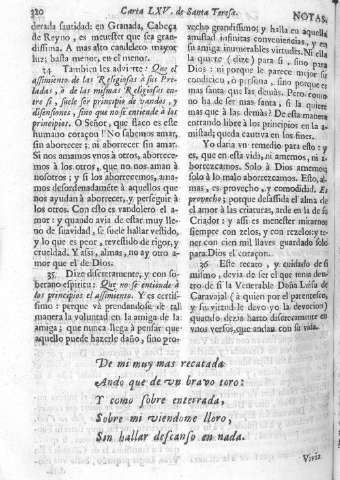 220
Carta LXV. de Santa Teresa.
NOTAS.
derada santidad: en Granada, Cabeça
de Reyno, es menester que sea gran-
dissima. A mas alto candelero mayor
luz; basta menor, en el menor.
34. Tambien les advierte: Que el
assimiento de las Religiosas à sus Pre-
ladas, ò de las mismas Religiosas en-
tre si, suele ser principio de vandos, y
dissensiones, sino que no se entiende à los
principios. O Señor, que flaco es este
humano coraçon! No sabemos amar,
sin aborrecer; ni aborrecer sin amar.
Si nos amamos vnos à otros, aborrece-
mos à los otros, que no nos aman à
nosotros; y si los aborrecemos, ama-
mos desordenadamẽte à aquellos que
nos ayudan à aborrecer, y perseguir à
los otros. Con esto es vandolero el a-
mor: y quando avia de estar muy lle-
no de suavidad, se suele hallar vestido,
y lo que es peor, revestido de rigor, y
crueldad. Y assi, almas, no ay otro a-
mor que el de Dios.
35. Dize discretamente, y con so-
berano espiritu: Que no se entiende à
los principios el assimiento. Y es certis-
simo: porque và prendandose de tal
manera la voluntad en la amiga de la
amiga; que nunca llega à pensar que
aquello puede hazerle daño, sino pro-
vecho grandissimo; y halla en aquella
amistad infinitas conveniencias, y en
su amiga inumerables virtudes. Ni ella
la quiere (dize) para sì, sino para
Dios: ni porque le parece mejor su
condicion, ò persona, sino porque es
mas santa que las demàs. Pero como
no ha de ser mas santa, si la quiere
mas que à las demàs? De esta manera
entrando libre à los principios en la a-
mistad; queda cautiva en los fines.
Yo daria vn remedio para esto: y
es, que en esta vida, ni amemos, ni a-
borrezcamos. Solo à Dios amemos,
solo à lo malo aborrezcamos. Esto, al-
mas, es provecho, y comodidad. Es
provecho; porque desassida el alma de
el amor à las criaturas, arde en la de su
Criador: y assi es menester mirarnos
siempre con zelos, y con rezelos; y te-
ner con cien mil llaves guardado solo
para Dios el coraçon.
36. Este recato, y cuidado de si
mismo, devia de ser el que tenia den-
tro de si la Venerable Doña Luisa de
Caravajal (à quien por el parentesco,
y su virtud le devo yo la devocion)
quando dezia harto discretamente en
vnos versos, que andan con su vida.
De mi muy mas recatada
Ando que de vn bravo toro:
Y como sobre enterrada,
Sobre mi viendome lloro,
Sin hallar descanso en nada.
Vivia